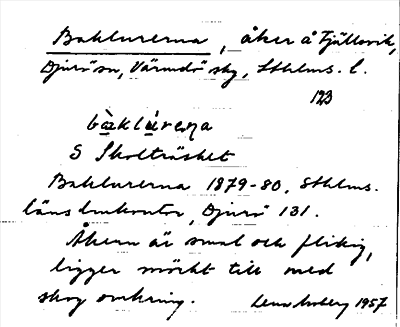 Baklurerna, åker å Fjällsvik,
Djurö sn, Värmdö skg, Sthlms. l.
123
bàklúreṇa
S Skolträsket
Baklurerna 1879-80, Sthlms.
läns lmkontor, Djurö 131.
Åkern är smal och flikig,
ligger mörkt till med
skog omkring. 1957